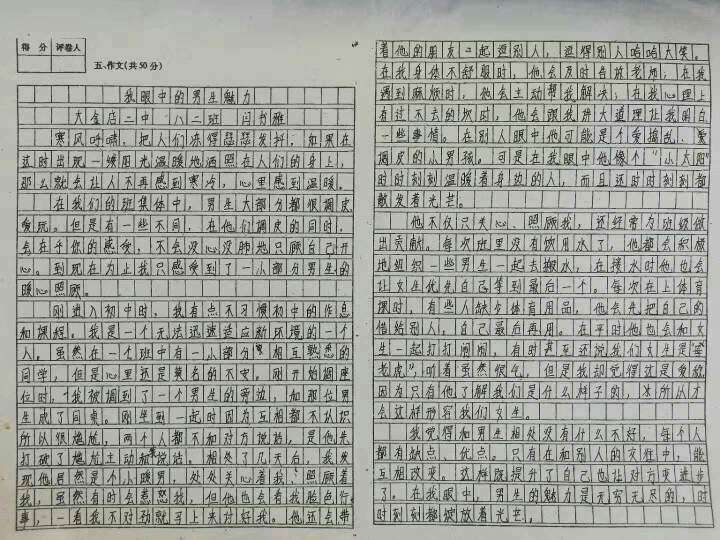 得 分 评卷人
五、作文(共50分)
我眼中的男生魅力
大金店二中 八二班 闫书雅
寒风呼啸,把人们冻得瑟瑟发抖,如果在
这时出现一缕阳光温暖地洒照在人们的身上,
那么就会让人不再感到寒冷,心里感到温暖。
在我们的班集体中,男生大部分都很调皮、
爱玩。但是有一些不同,在他们调皮的同时,
会在乎你的感受,不会没心没肺地只顾自己开
心。到现在为止我只感受到了一小部分男生的
暖心照顾。
刚进入初中时,我有点不习惯初中的作息
和课程。我是一个无法迅速适应新环境的一个
人。虽然在一个班中有一小部分相互熟悉的
同学,但是心里还是莫名的不安。刚开始调座
位时,我被调到了一个男生的旁边,和那位男
生成了同桌。刚坐到一起时因为互相都不认识
所以很尴尬,两个人都不和对方说话,是他先
打破了尴尬主动和我说话。相处了几天后,我发
现他居然是个小暖男,处处关心着我、照顾着
我,虽然有时会惹怒我,但他也会看我脸色行
事,一看我不对劲就马上来讨好我。他还会带
着他的朋友一起逗别人,逗得别人哈哈大笑。
在我身体不舒服时,他会及时告诉老师;在我
遇到麻烦时,他会主动帮我解决;在我心理上
有过不去的坎时,他会跟我讲大道理让我明白
一些事情。在别人眼中他可能是个爱捣乱、爱
调皮的小男孩。可是在我眼中他像个“小太阳”
时时刻刻温暖着身边的人,而且还时时刻刻都
献发着光芒。
他不仅只关心、照顾我,还经常为班级做
出贡献。每次班里没有饮用水了,他都会积极
地组织一些男生一起去搬水,在接水时他也会
让女生优先自己等到最后一个。每次在上体育
课时,有些人缺少体育用品,他会先把自己的
借给别人,自己最后再用。在平时他也会和女
生一起打打闹闹,有时甚至还说我们女生是“母
老虎”,听着虽然很气,但是我却觉得这是爱称
因为只有他了解我们是什么样子的,才
会这样形容我们女生。
我觉得和男生相处没有什么不好,每个人
都有缺点、优点。只有在和别人的交往中,能
互相改变。这样既提升了自己也让对方变进步
了。在我眼中,男生的魅力是无穷无尽的,时
时刻刻都绽放着光芒。